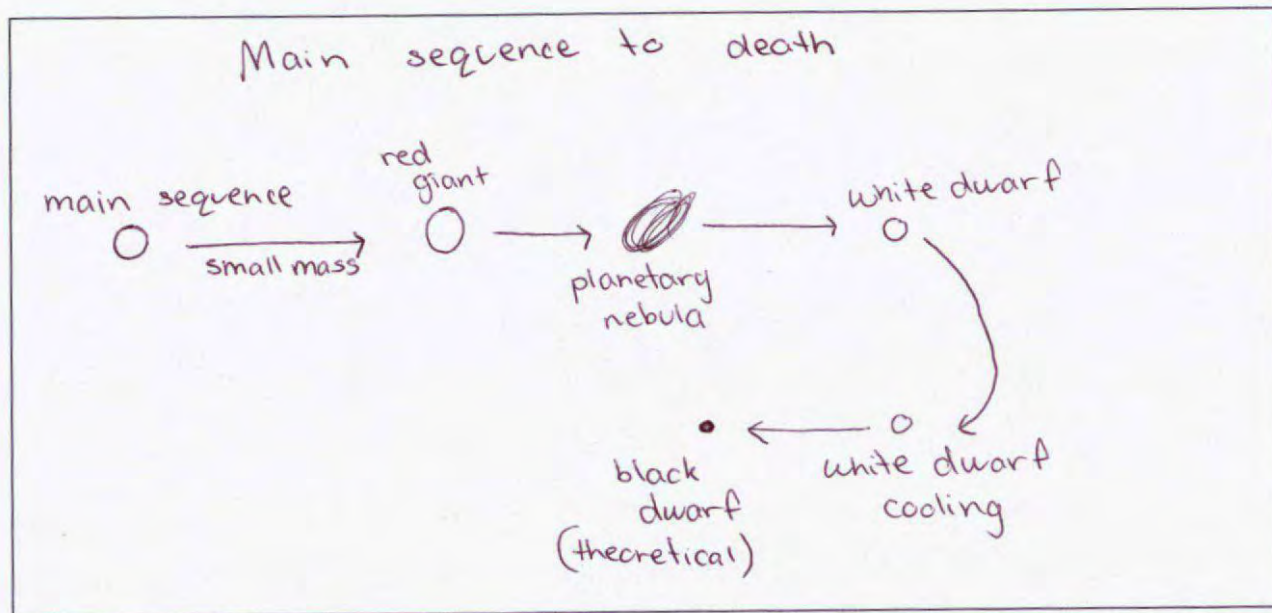 Main sequence to death
main sequence
small mass
red
giant
planetary
nebula
white dwarf
white dwarf
cooling
black
dwarf
(theoretical)